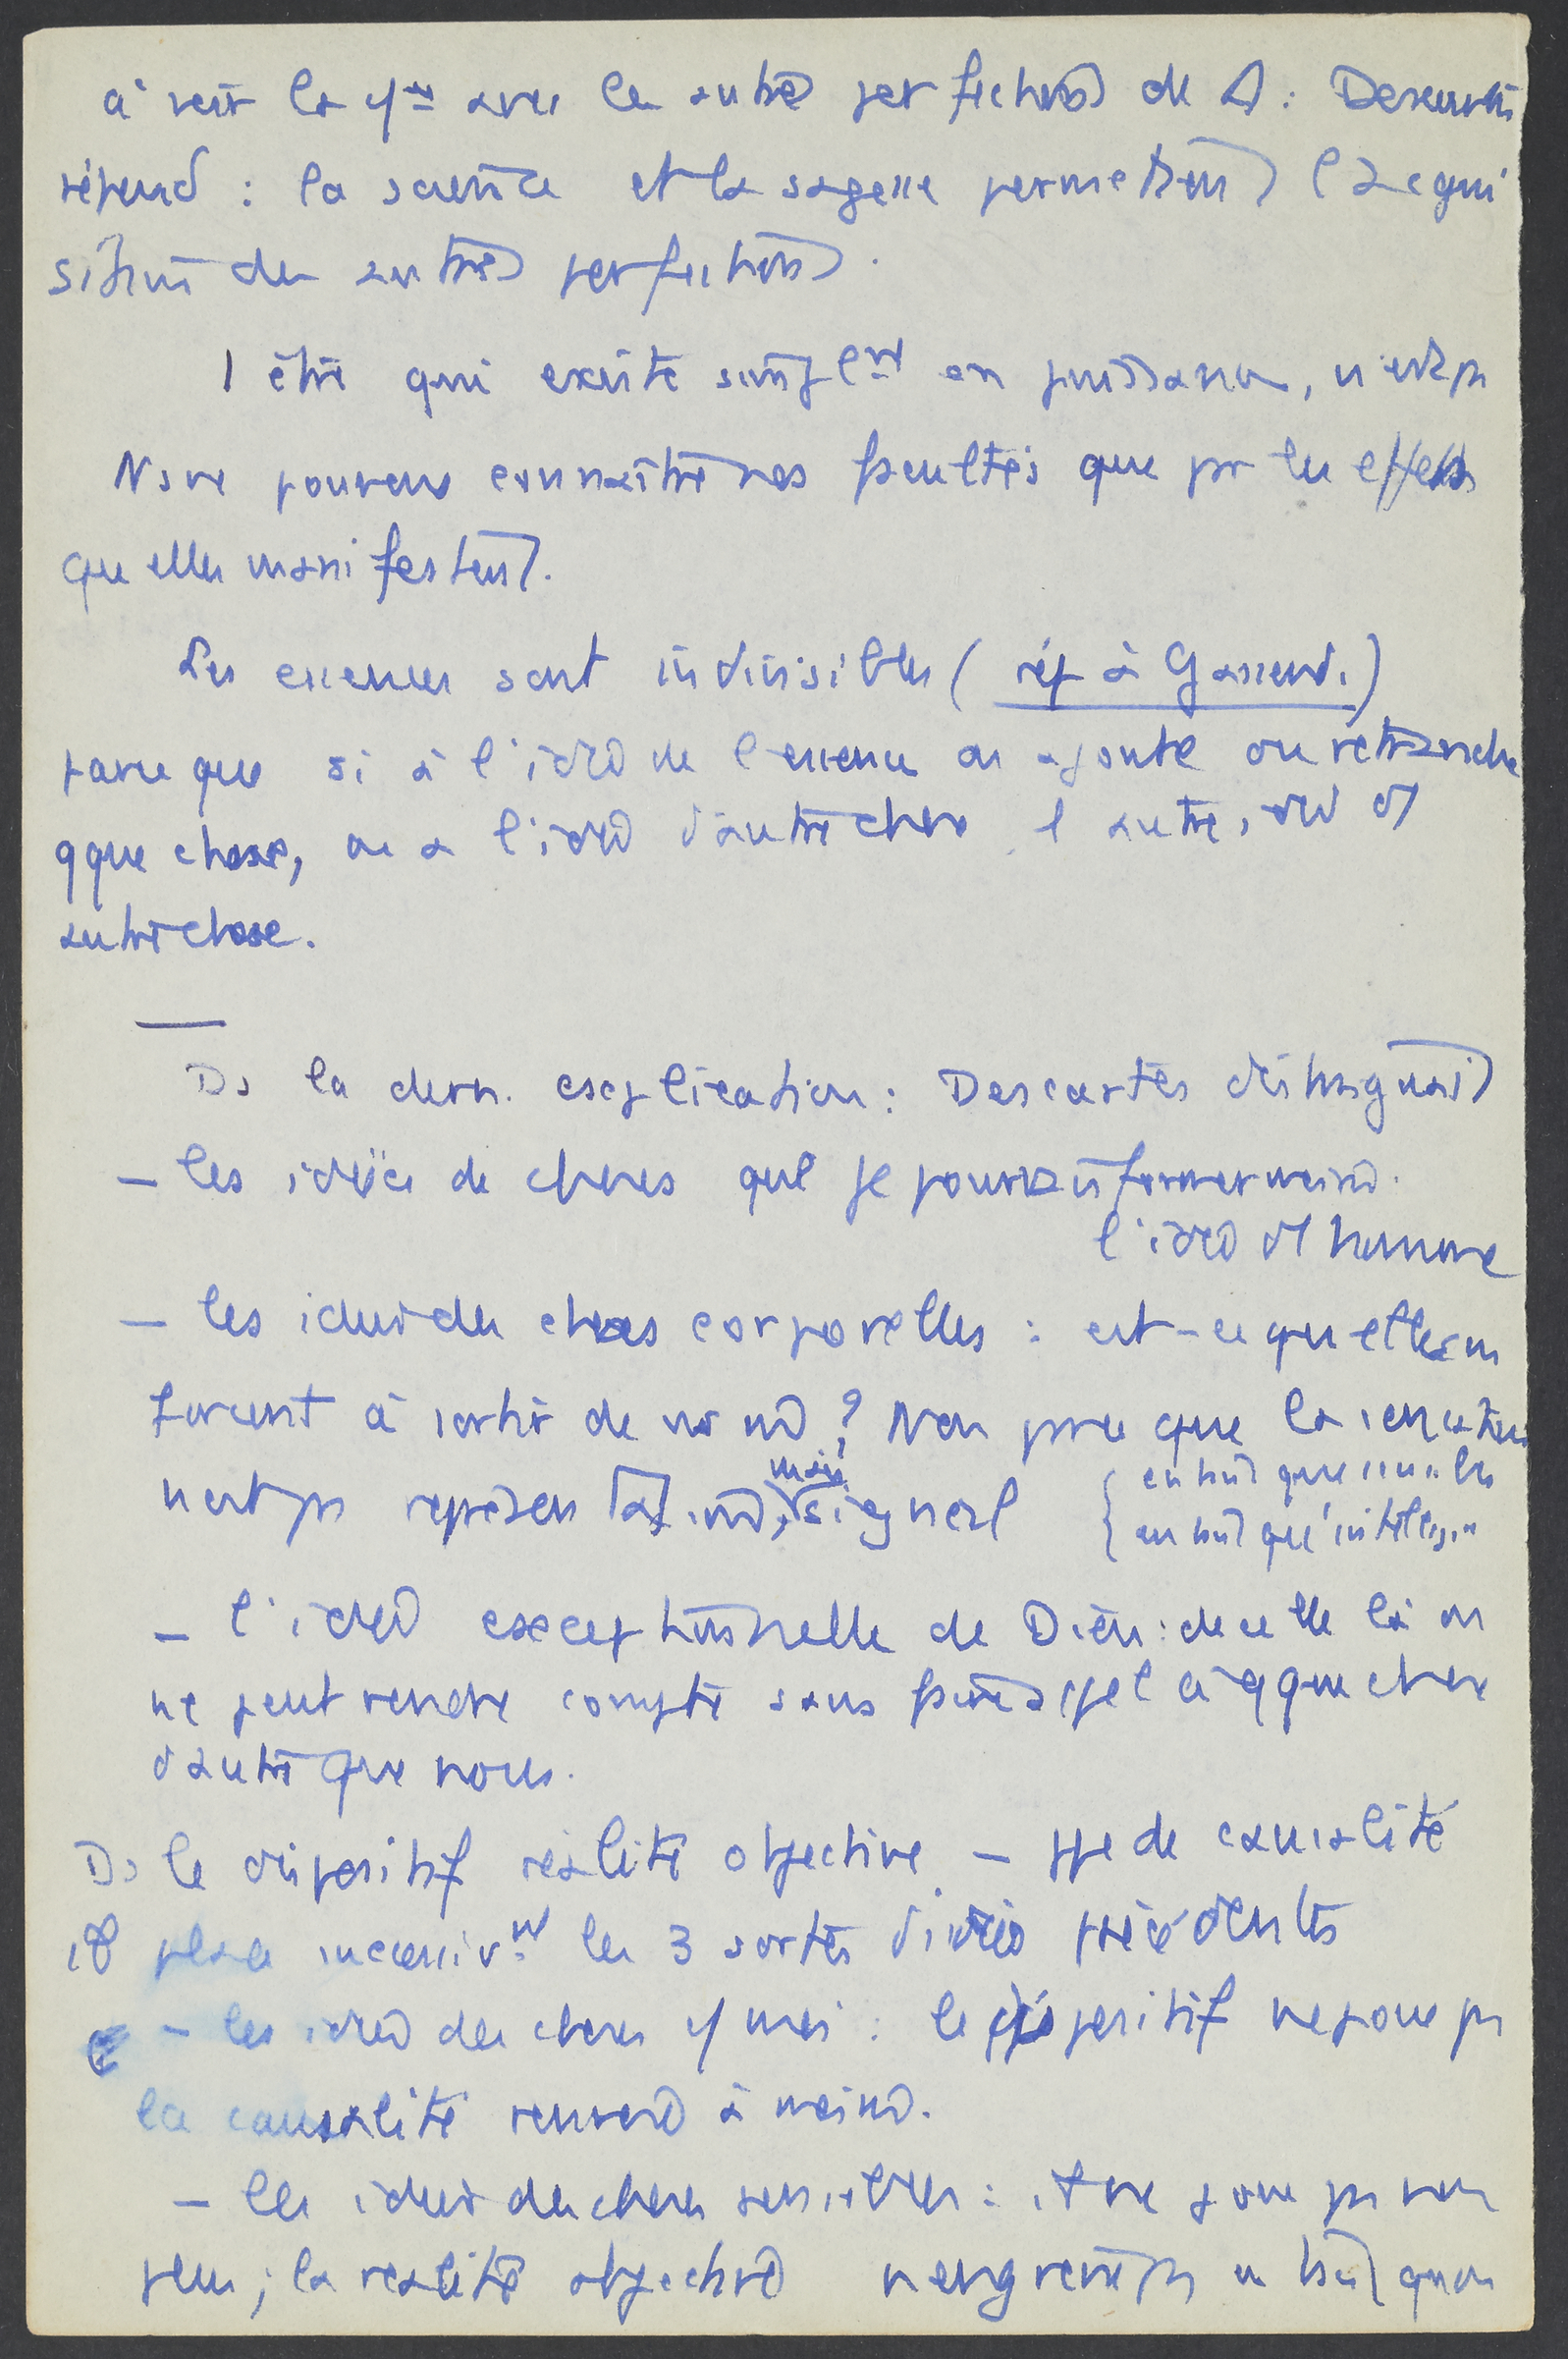 à voir la avec les autres perfections de D : Descartes
répond : la science et la sagesse permettent l'acqui
sition des autres perfections.
1 être qui existe simplemt en puissance, n'est pas
Nous pouvons connaître nos facultés que par les effets
qu'elles manifestent.
Les essences sont indivisibles (rép à Gassendi)
parce que si à l'idée de l'essence on ajoute ou retranche
qque chose, on a l'idée d'autre chose
autre chose.
Ds la dern. explication : Descartes distinguait
- les idées de choses que je pourrais former moi-m.
l'idée d'1 homme
- les idées des choses corporelles : est-ce qu'elles m
forcent à sortir de moi m ? Non parce que la sensation
n'est pas représentation, mais signal { en tant que sensible
en tant qu'
- l'idée exceptionnelle de Dieu : de celle là on
ne peut rendre compte sans faire appel à qque chose
d'autre que nous.
Ds le dispositif réalité objective - ppe de causalité
place successivmt les 3 sortes d'idées précédentes
- les idées des choses c/ moi : le dispositif ne joue pas
la causalité renvoie à moi m.
- les idées des choses sensibles : il ne joue pas non
plus ; la réalité objective n'engrène pas en tant qu'on